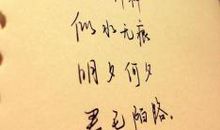 似水无痕
明夕何夕
君已陌路.